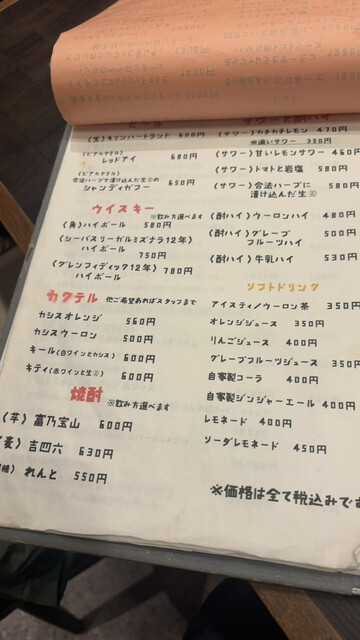 (生)キリンハートランド 600円
(ビアカクテル)
レッドアイ 680円
(ビアカクテル)
合法ハーブで漬け込んだ生の
シャンディガフ 650円
ウイスキー ※飲み方選べます
(角)ハイボール 580円
(シーバスリーガルミズナラ12年)
ハイボール
750円
(グレンフィディック12年) 780円
ハイボール
カクテル 他ご希望あればスタッフまで
カシスオレンジ 560円
カシスウーロン 500円
キール(白ワインとカシス) 600円
キティ(赤ワインと生) 600円
焼酎 ※飲み方選べます
(芋) 富乃宝山 600円
麦) 吉四六 630円
れんと 550円
サワーと酎ハイ
(サワー)カチカチレモン 470円
※追いサワー 350円
(サワー)甘いレモンサワー 460円
(サワー)トマトと岩塩 580円
(サワー)合法ハーブに 580円
漬け込んだ生
(酎ハイ)ウーロンハイ 480円
(酎ハイ)グレープ 500円
フルーツハイ
(酎ハイ)牛乳ハイ 530円
ソフトドリンク
アイスティ/ウーロン茶 350円
オレンジジュース 350円
りんごジュース 400円
グレープフルーツジュース 350円
自家製コーラ 400円
自家製ジンジャーエール 400円
レモネード 400円
ソーダレモネード 450円
※価格は全て税込みです